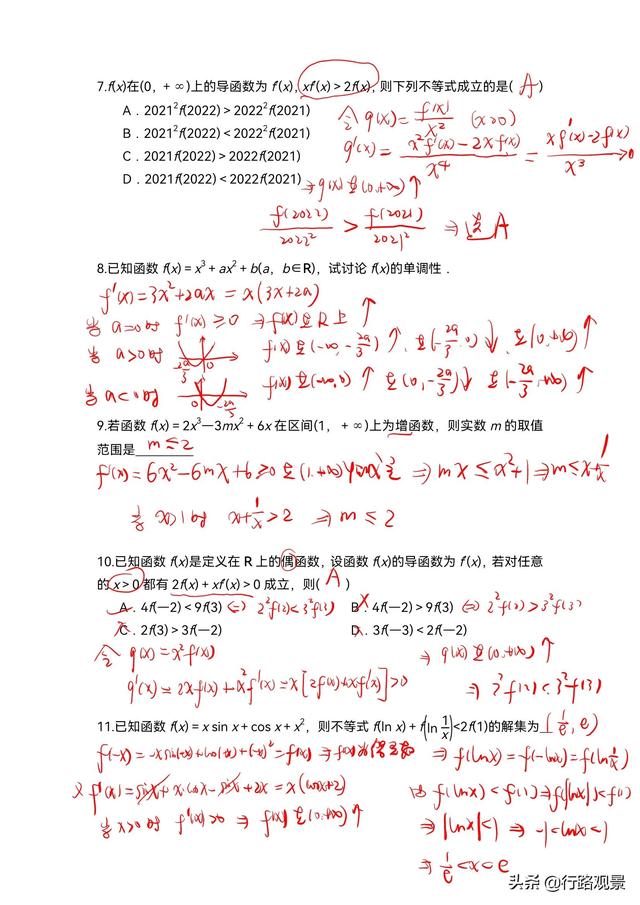 7.f(x)在(0，+∞)上的导函数为 f'(x)，xf'(x)＞2f(x)，则下列不等式成立的是( A )
A．2021²f(2022)＞2022²f(2021)
令 g(x)=f(x)/x² (x>0)
B．2021²f(2022)＜2022²f(2021)
g'(x)=(x²f'(x)-2xf(x))/x⁴=(xf'(x)-2f(x))/x³>0
C．2021f(2022)＞2022f(2021)
D．2021f(2022)＜2022f(2021)
⇒g(x)在(0,+∞)↑
f(2022)/2022² > f(2021)/2021² ⇒选A
8.已知函数 f(x)＝x³＋ax²＋b(a，b∈R)，试讨论 f(x)的单调性．
f'(x)=3x²+2ax=x(3x+2a)
当 a=0时 f'(x)≥0 ⇒f(x)在R上↑
当 a>0时 -2a/3 0 f(x)在(-∞,-2a/3)↑，在(-2a/3,0)↓，在(0,+∞)↑
当 a<0时 0 -2a/3 f(x)在(-∞,0)↑ 在(0,-2a/3)↓，在(-2a/3,+∞)↑
9.若函数 f(x)＝2x³—3mx²＋6x 在区间(1，＋∞)上为增函数，则实数 m 的取值
范围是 m≤2
f'(x)=6x²-6mx+6≥0在(1,+∞) ⇒mx≤x²+1⇒m≤x+1/x
当 x>1时 x+1/x>2 ⇒m≤2
10.已知函数 f(x)是定义在 R 上的偶函数，设函数 f(x)的导函数为 f'(x)，若对任意
的 x＞0 都有 2f(x)＋xf'(x)＞0 成立，则( A )
A．4f(—2)＜9f(3) ⇔2²f(2)<3²f(3) B．4f(—2)＞9f(3) ⇔2²f(2)>3²f(3)
C．2f(3)＞3f(—2) D．3f(—3)＜2f(—2)
令 g(x)=x²f(x) ⇒g(x)在(0,+∞)↑
g'(x)=2xf(x)+x²f'(x)=x[2f(x)+xf'(x)]>0 ⇒2²f(2)<3²f(3)
11.已知函数 f(x)＝x sin x＋cos x＋x²，则不等式 f(ln x)＋f(ln 1/x)<2f(1)的解集为 (1/e, e)
f(-x)=-xsin(-x)+cos(-x)+(-x)²=f(x)⇒f(x)为偶函数 ⇒f(lnx)=f(-lnx)=f(ln1/x)
又f'(x)=sinx+x·cosx-sinx+2x=x(cosx+2) f(lnx)<f(1)⇒f(|lnx|)<f(1)
当x>0时 f'(x)>0 ⇒f(x)在(0,+∞)↑ ⇒|lnx|<1 ⇒-1<lnx<1
⇒1/e<x<e
头条 @行路观景